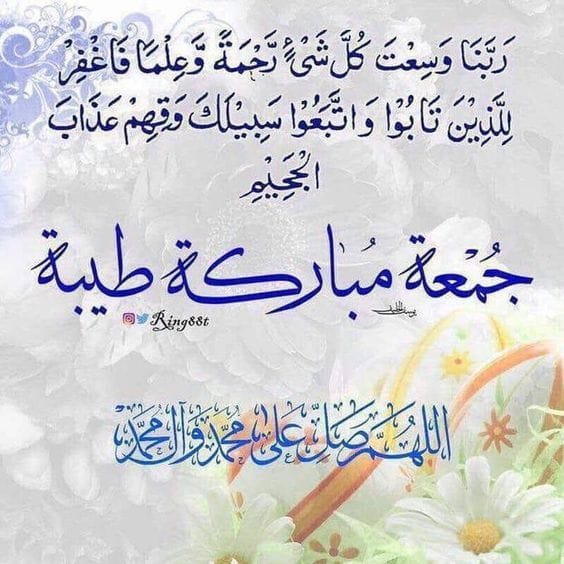 رَبَّنَا وَسِعْتَ كُلَّ شَيْءٍ رَّحْمَةً وَّعِلْمًا فَاغْفِرْ
لِلَّذِيْنَ تَابُوْا وَاتَّبَعُوْا سَبِيْلَكَ وَقِهِمْ عَذَابَ
الْجَحِيْمِ
جُمْعَة مُبَاركة طيبة
Ring88t
اللهُمَّ صَلِّ عَلىٰ مُحَمَّد وَآلِ مُحَمَّد